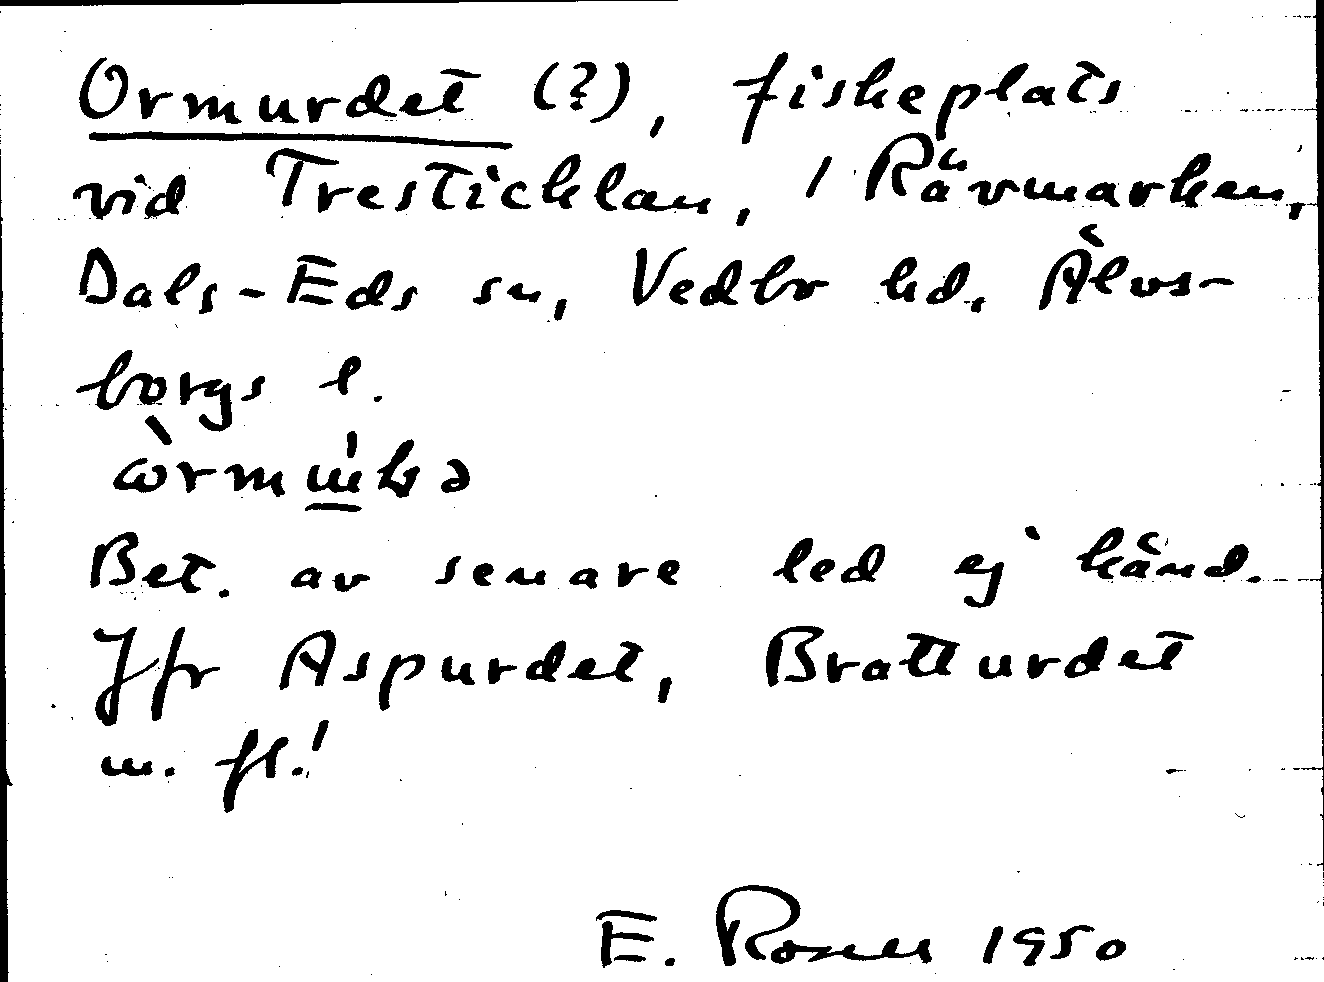 Ormurdet (?), fiskeplats
vid Tresticklan, / Rävmarken,
Dals-Eds sn, Vedbo hd, Älvs-
borgs l.
Bet. av senare led ej känd.
Jfr Aspurdet, Bratturdet
m. fl.!
E. Rosell 1950